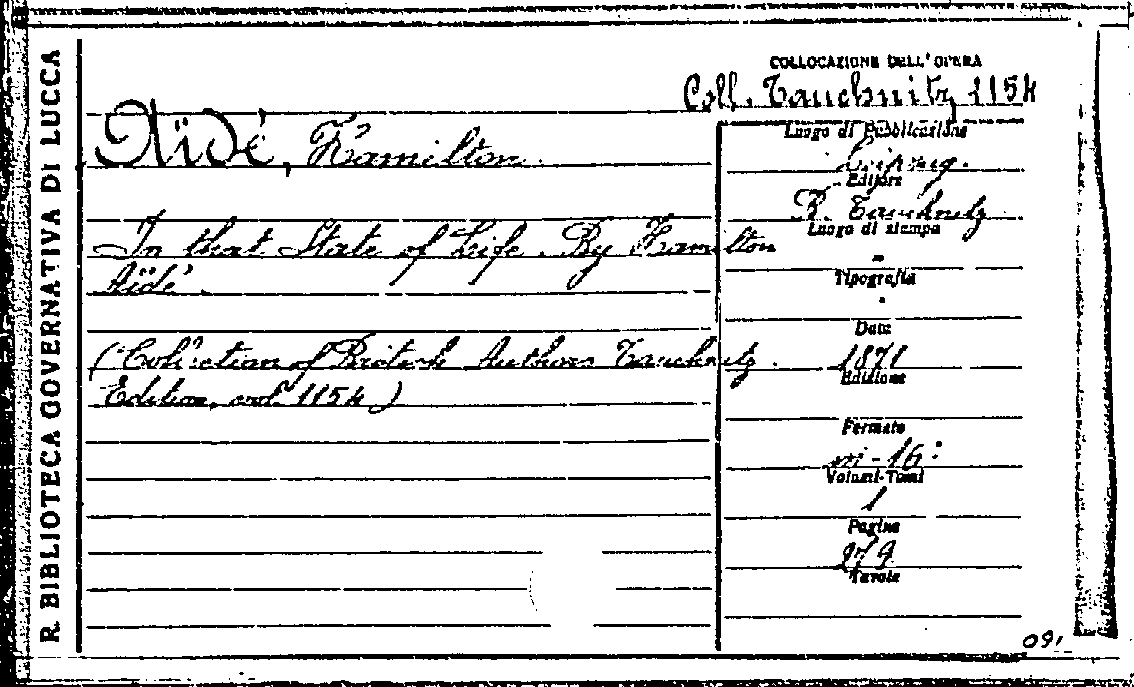 R. BIBLIOTECA GOVERNATIVA DI LUCCA
COLLOCAZIONE DELL'OPERA
Coll. Tauchnitz 1154
Aïdé, Hamilton
In that State of Life. By Hamilton
Aïdé.
(Collection of British Authors Tauchnitz
Edition, vol. 1154)
Luogo di Pubblicazione
Leipzig.
Editore
B. Tauchnitz
Luogo di stampa
"
Tipografia
"
Data
1871
Edizione
Formato
in-16:
Volumi-Tomi
1
Pagine
279
Tavole
091